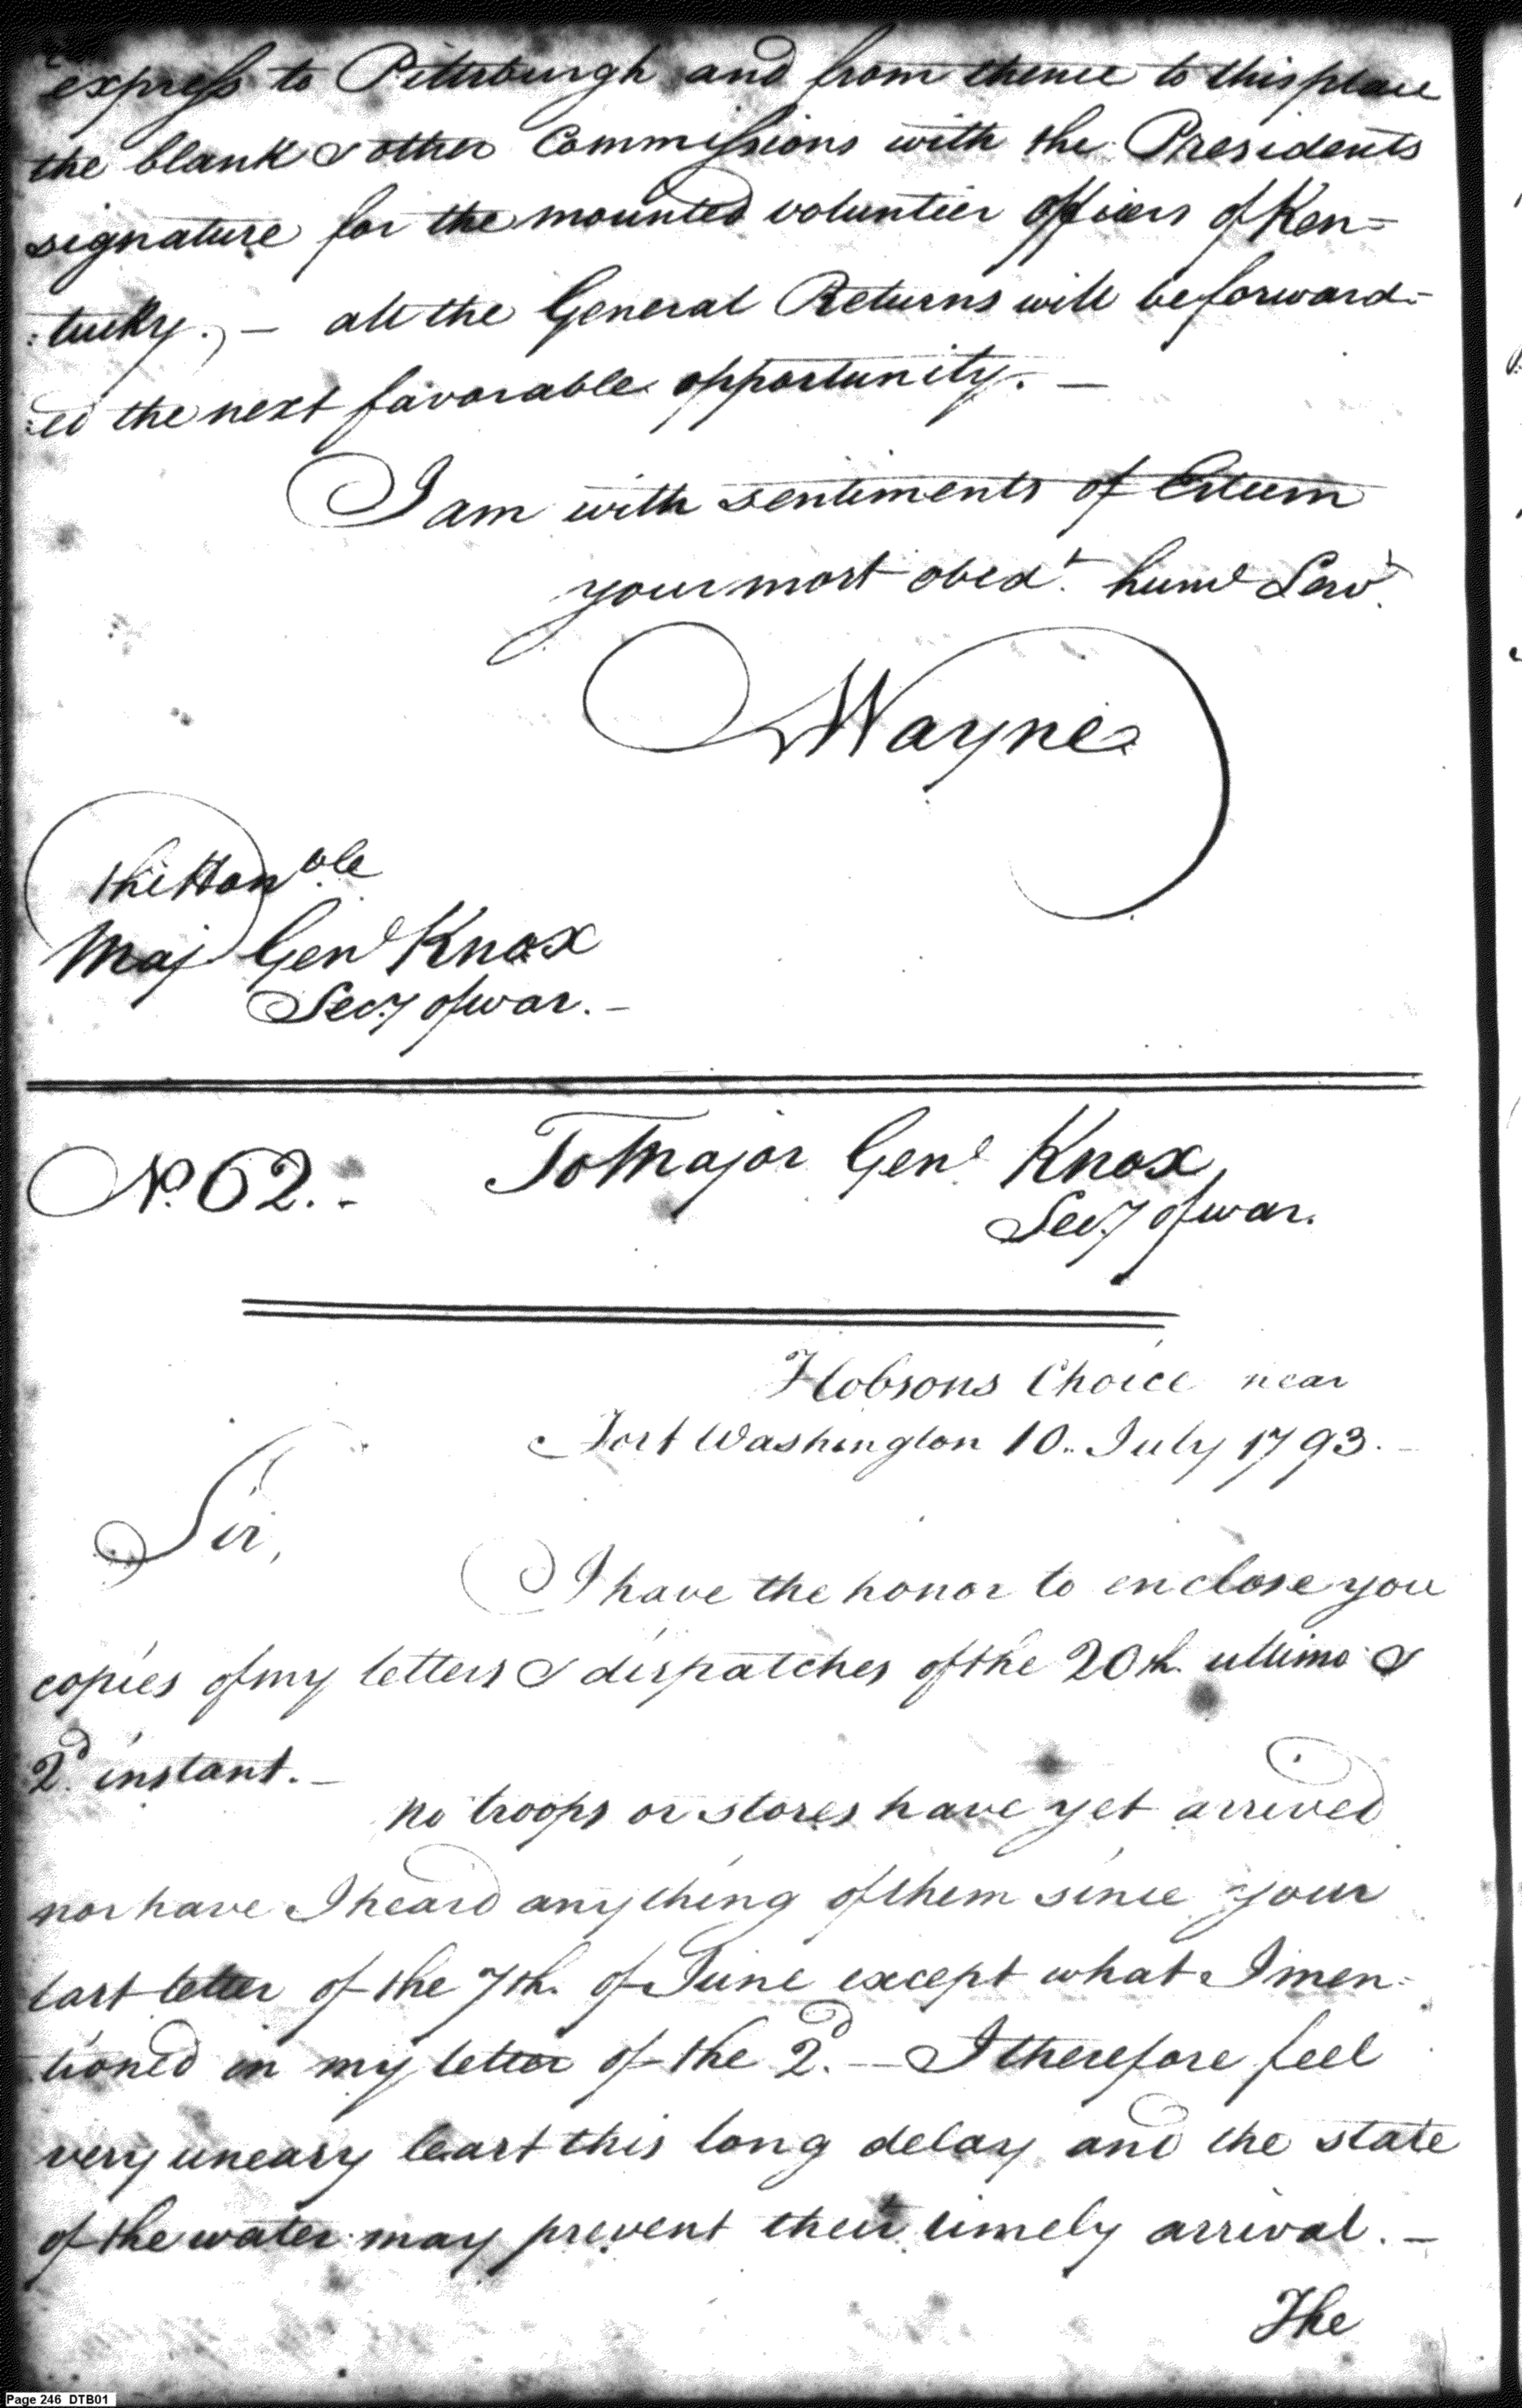 express to Pittsburgh and from thence to this place
the blank & other Commissions with the Presidents
signature for the mounted voluntier officers of Ken=
:tucky. — all the General Returns will be forward=
:ed the next favorable opportunity. —
I am with sentiments of Esteem
your most obedt. humb Servt.
Wayne
The Honble
Maj Genl Knox
Secy of war. —
No. 62. -
To Major Genl Knox,
Secy of war.
Hobsons Choice near
Fort Washington 10.. July 1793. —
Sir,
I have the honor to enclose you
copies of my letters & dispatches of the 20th. ultimo &
2d. instant. —
no troops or stores have yet arrived
nor have I heard any thing of them since your
last letter of the 7th. of June except what I men=
tioned in my letter of the 2d. — I therefore feel
very uneasy least this long delay and the state
of the water may prevent their timely arrival. —
The
Page 246 DTB01